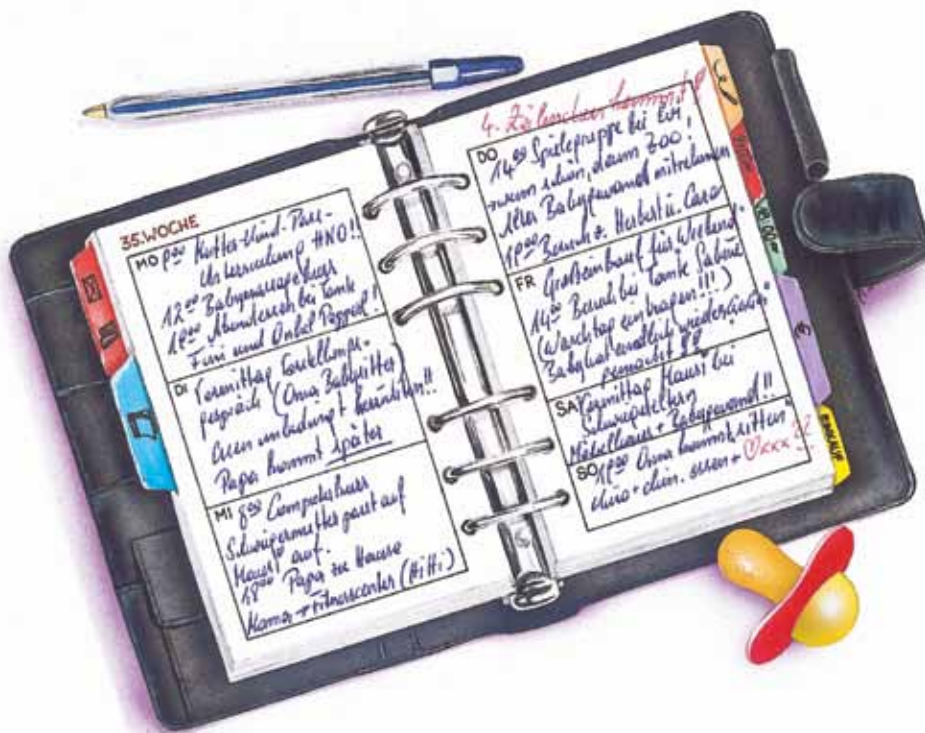 35. WOCHE
MO 8⁰⁰ Mutter-Kind-Pass-
Untersuchung HNO!!
12⁰⁰ Babymassagekurs
18⁰⁰ Abendessen bei Tante
Fini und Onkel Poppid!
DI Vormittag Vorstellungs-
gespräch (Oma Babysitter)
Essen unbedingt
Papa kommt später
MI 8⁰⁰ Computerkurs
Schwiegermutter passt auf
Mausi auf.
18⁰⁰ Papa zu Hause
Mama → Fitnesscenter (HiHi)
4. Zähnchen kommt!
DO
14⁰⁰ Spielegruppe bei Evi,
wenn schön, dann Zoo!
Babygewand mitnehmen
Besuch v. Herbert u. Cara
FR Großeinkauf für Weekend
14⁰⁰ Besuch bei Tante Sabine
(Waschtag eintragen!!!)
Baby hat endlich wieder
gemacht
SA Vormittag Mausi bei
Schwiegereltern
Möbelhaus + Babygewand!!
SO 18⁰⁰ Oma kommt "sitten"
Kino + chin. essen + ♡xxx??
EINKAUF